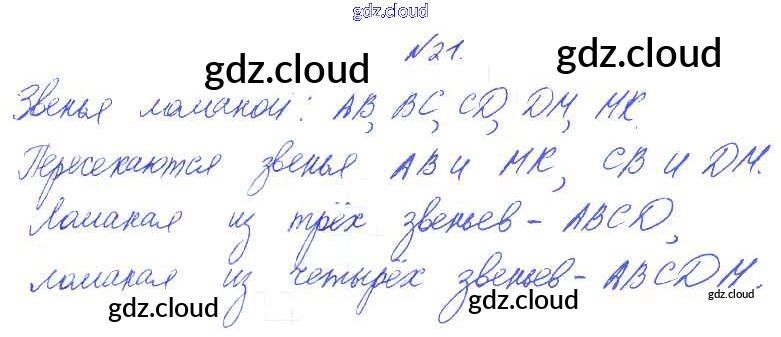 gdz.cloud
№21. gdz.cloud
gdz.cloud
Звенья ломаной: AB, BC, CD, DM, MK.
Пересекаются звенья AB и MK, CB и DM.
Ломаная из трёх звеньев - ABCD,
ломаная из четырёх звеньев - ABCDM.
gdz.cloud gdz.cloud gdz.cloud